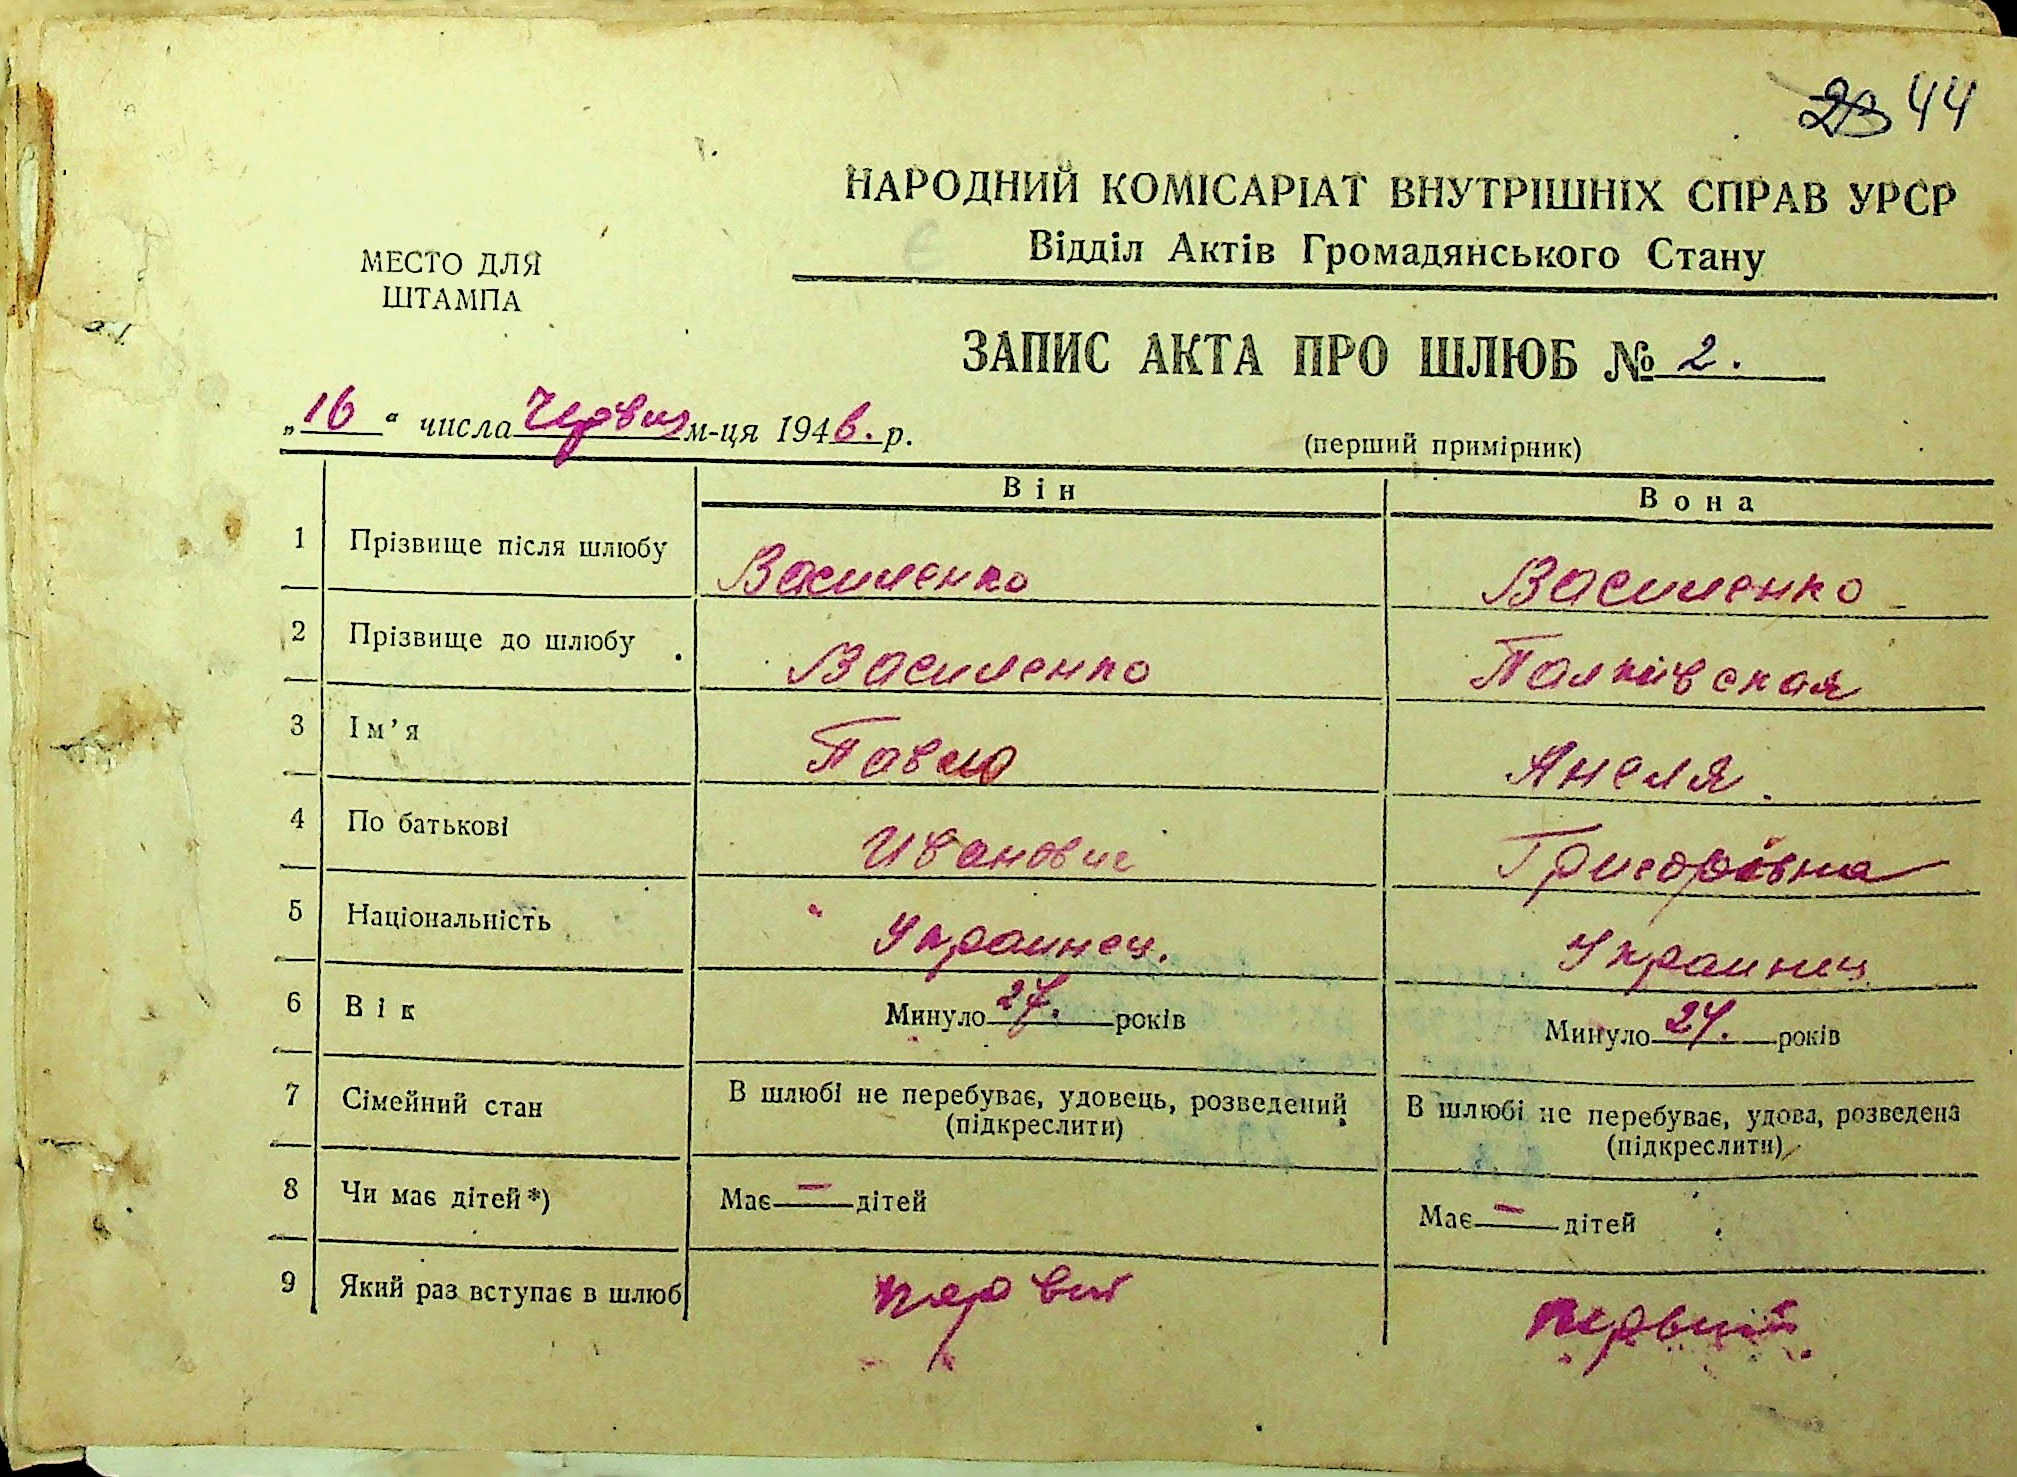 44
НАРОДНИЙ КОМІСАРІАТ ВНУТРІШНІХ СПРАВ УРСР
Відділ Актів Громадянського Стану
МЕСТО ДЛЯ
ШТАМПА
ЗАПИС АКТА ПРО ШЛЮБ № 2.
„16“ числа Червня м-ця 1946. р.
(перший примірник)
Він Вона
1 Прізвище після шлюбу Василенко Василенко
2 Прізвище до шлюбу Василенко
3 Ім’я Павло Анеля.
4 По батькові Иванович Григорівна
5 Національність Украинец. Украинец
6 Вік Минуло 27. років Минуло 24. років
7 Сімейний стан В шлюбі не перебуває, удовець, розведений В шлюбі не перебуває, удова, розведена
(підкреслити) (підкреслити)
8 Чи має дітей*) Має — дітей Має — дітей
9 Який раз вступає в шлюб первий